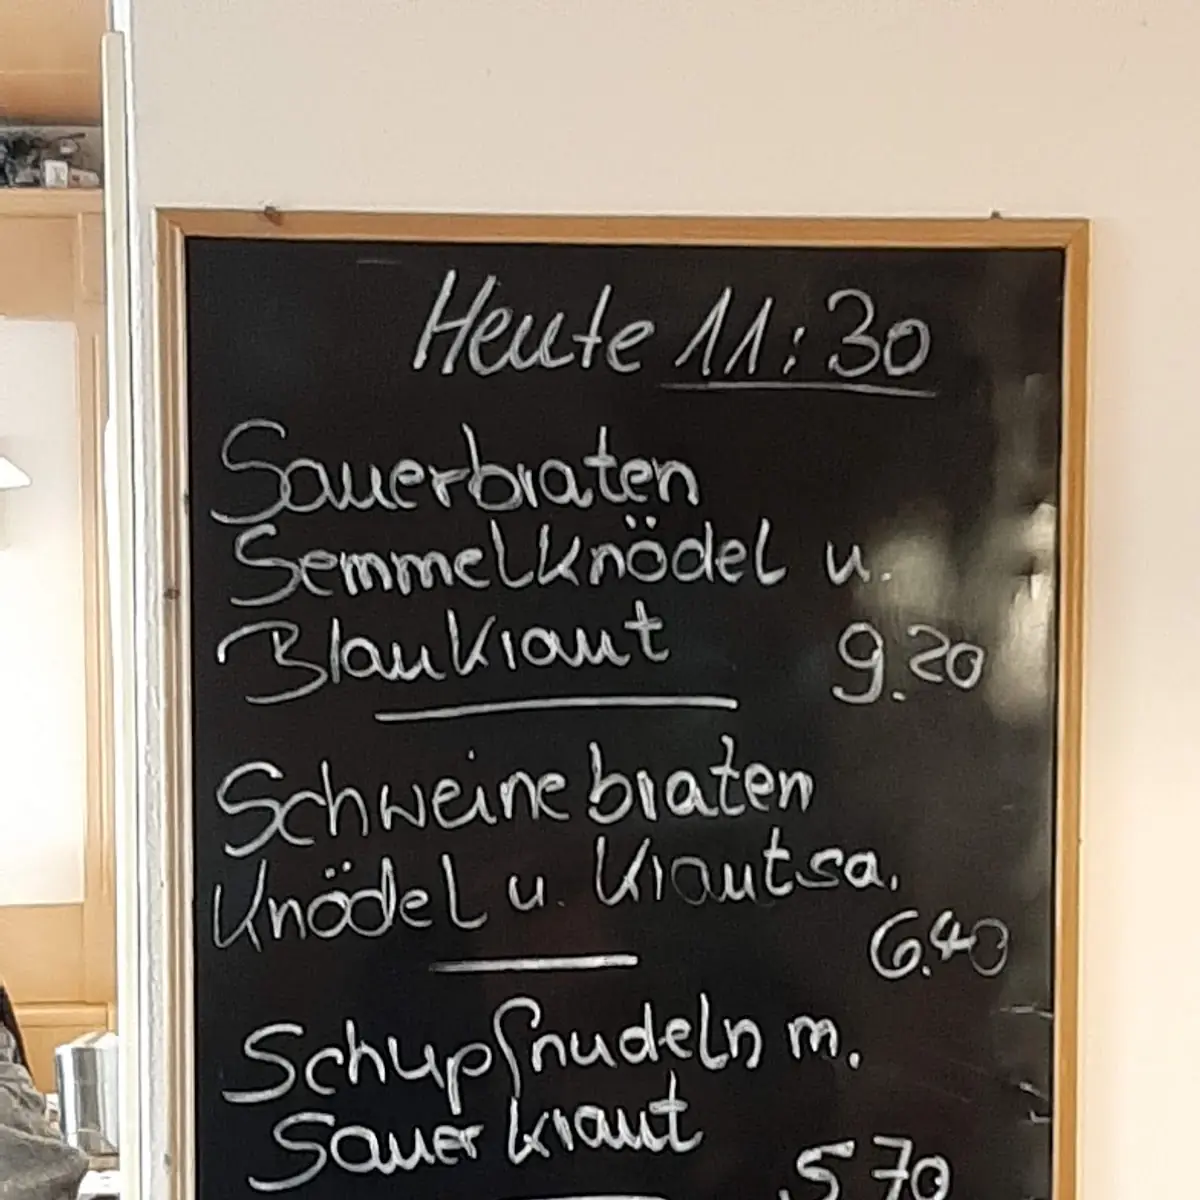 Heute 11:30
Sauerbraten
Semmelknödel u.
Blaukraut 9.20
Schweinebraten
Knödel u. Krautsa.
6.40
Schupfnudeln m.
Sauerkraut
5 70